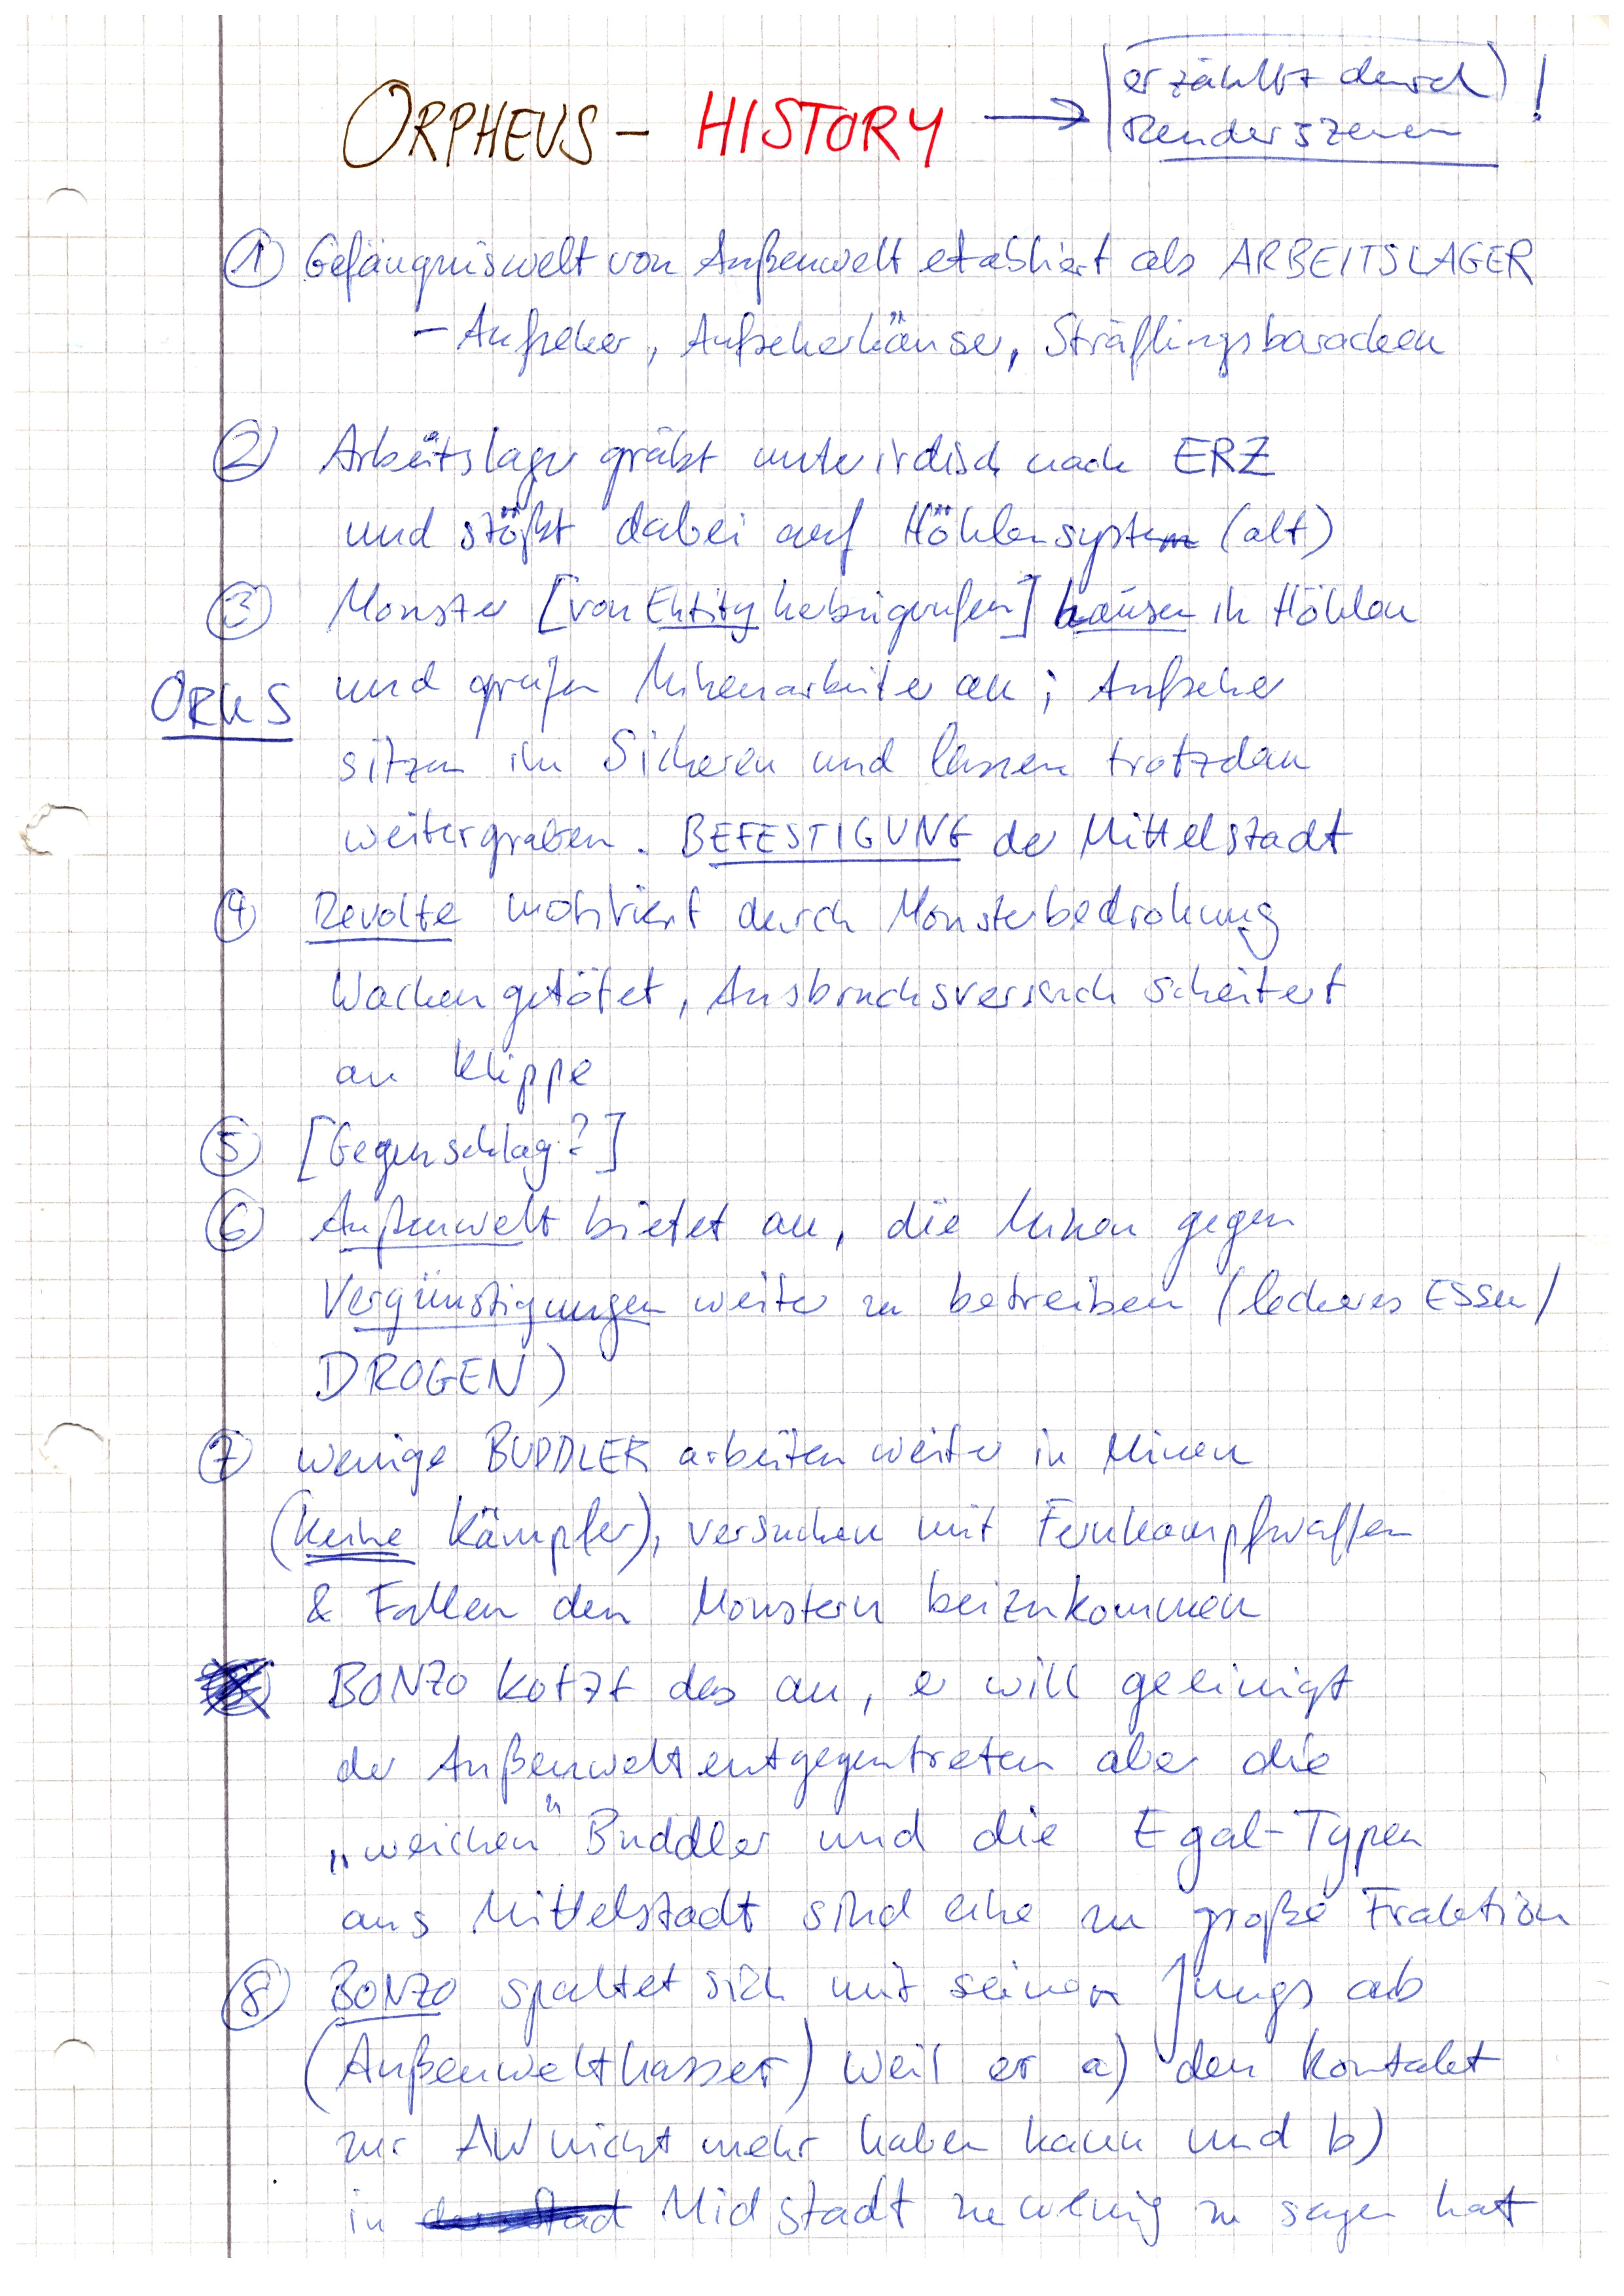 ORPHEUS – HISTORY → erzählt durch Renderszenen !
① Gefängniswelt von Außenwelt etabliert als ARBEITSLAGER
– Aufseher, Aufseherhäuser, Sträflingsbaracken
② Arbeitslager gräbt unterirdisch nach ERZ
und stößt dabei auf Höhlensystem (alt)
③ Monster [von Entity herbeigerufen] hausen in Höhlen
ORKS und greifen Minenarbeiter an; Aufseher
sitzen im Sicheren und lassen trotzdem
weitergraben. BEFESTIGUNG der Mittelstadt
④ Revolte motiviert durch Monsterbedrohung
Wachen getötet, Ausbruchsversuch scheitert
an Klippe
⑤ [Gegenschlag?]
⑥ Außenwelt bietet an, die Minen gegen
Vergünstigungen weiter zu betreiben (leckeres ESSen/
DROGEN)
⑦ wenige BUDDLER arbeiten weiter in Minen
(keine Kämpfer), versuchen mit Fernkampfwaffen
& Fallen den Monstern beizukommen
BONZO kotzt das an, er will geeinigt
der Außenwelt entgegentreten aber die
„weichen" Buddler und die Egal-Typen
aus Mittelstadt sind eine zu große Fraktion
⑧ BONZO spaltet sich mit seinen Jungs ab
(Außenwelthasser) weil er a) den Kontakt
zur AW nicht mehr haben kann und b)
in Midstadt zu wenig zu sagen hat